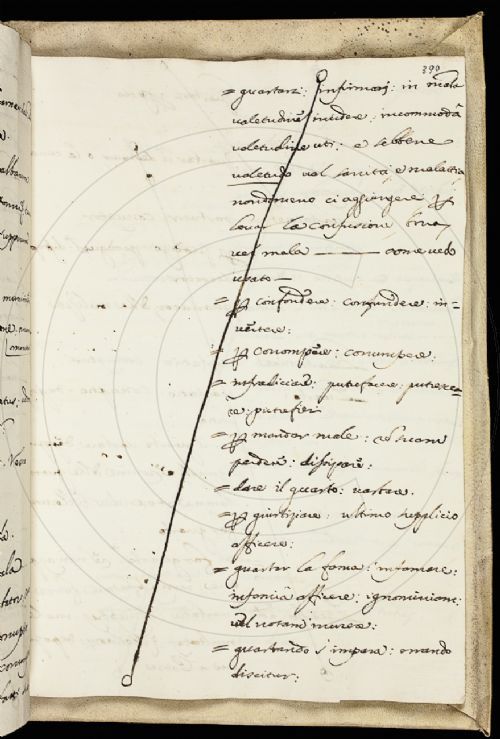 390
= guastarsi: infirmari: in mala
valetudine incidere: incommodâ
valetudine uti: e sebbene
valetudo val sanità, e malattia
nondimeno ci aggiungere p
levar la confusione bona,
vel mala ——— come vedo
usato —
= p confondere: confundere: in-
vertere:
= p corrompere: corrumpere:
= infradiciare: putrefacere: putresce-
re: putrefieri
= p mandar male: ed sicam
perdere: dissipare:
= dare il guasto: vastare.
= p giustiziare: ultimo supplicio
afficere:
= guastar la fama: infamare:
infamiâ afficere: ignominiam:
vel notam inurere:
= guastando s'impara: errando
discitur: